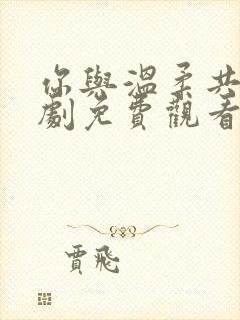 你與溫柔共
劇免費觀看
賈飛